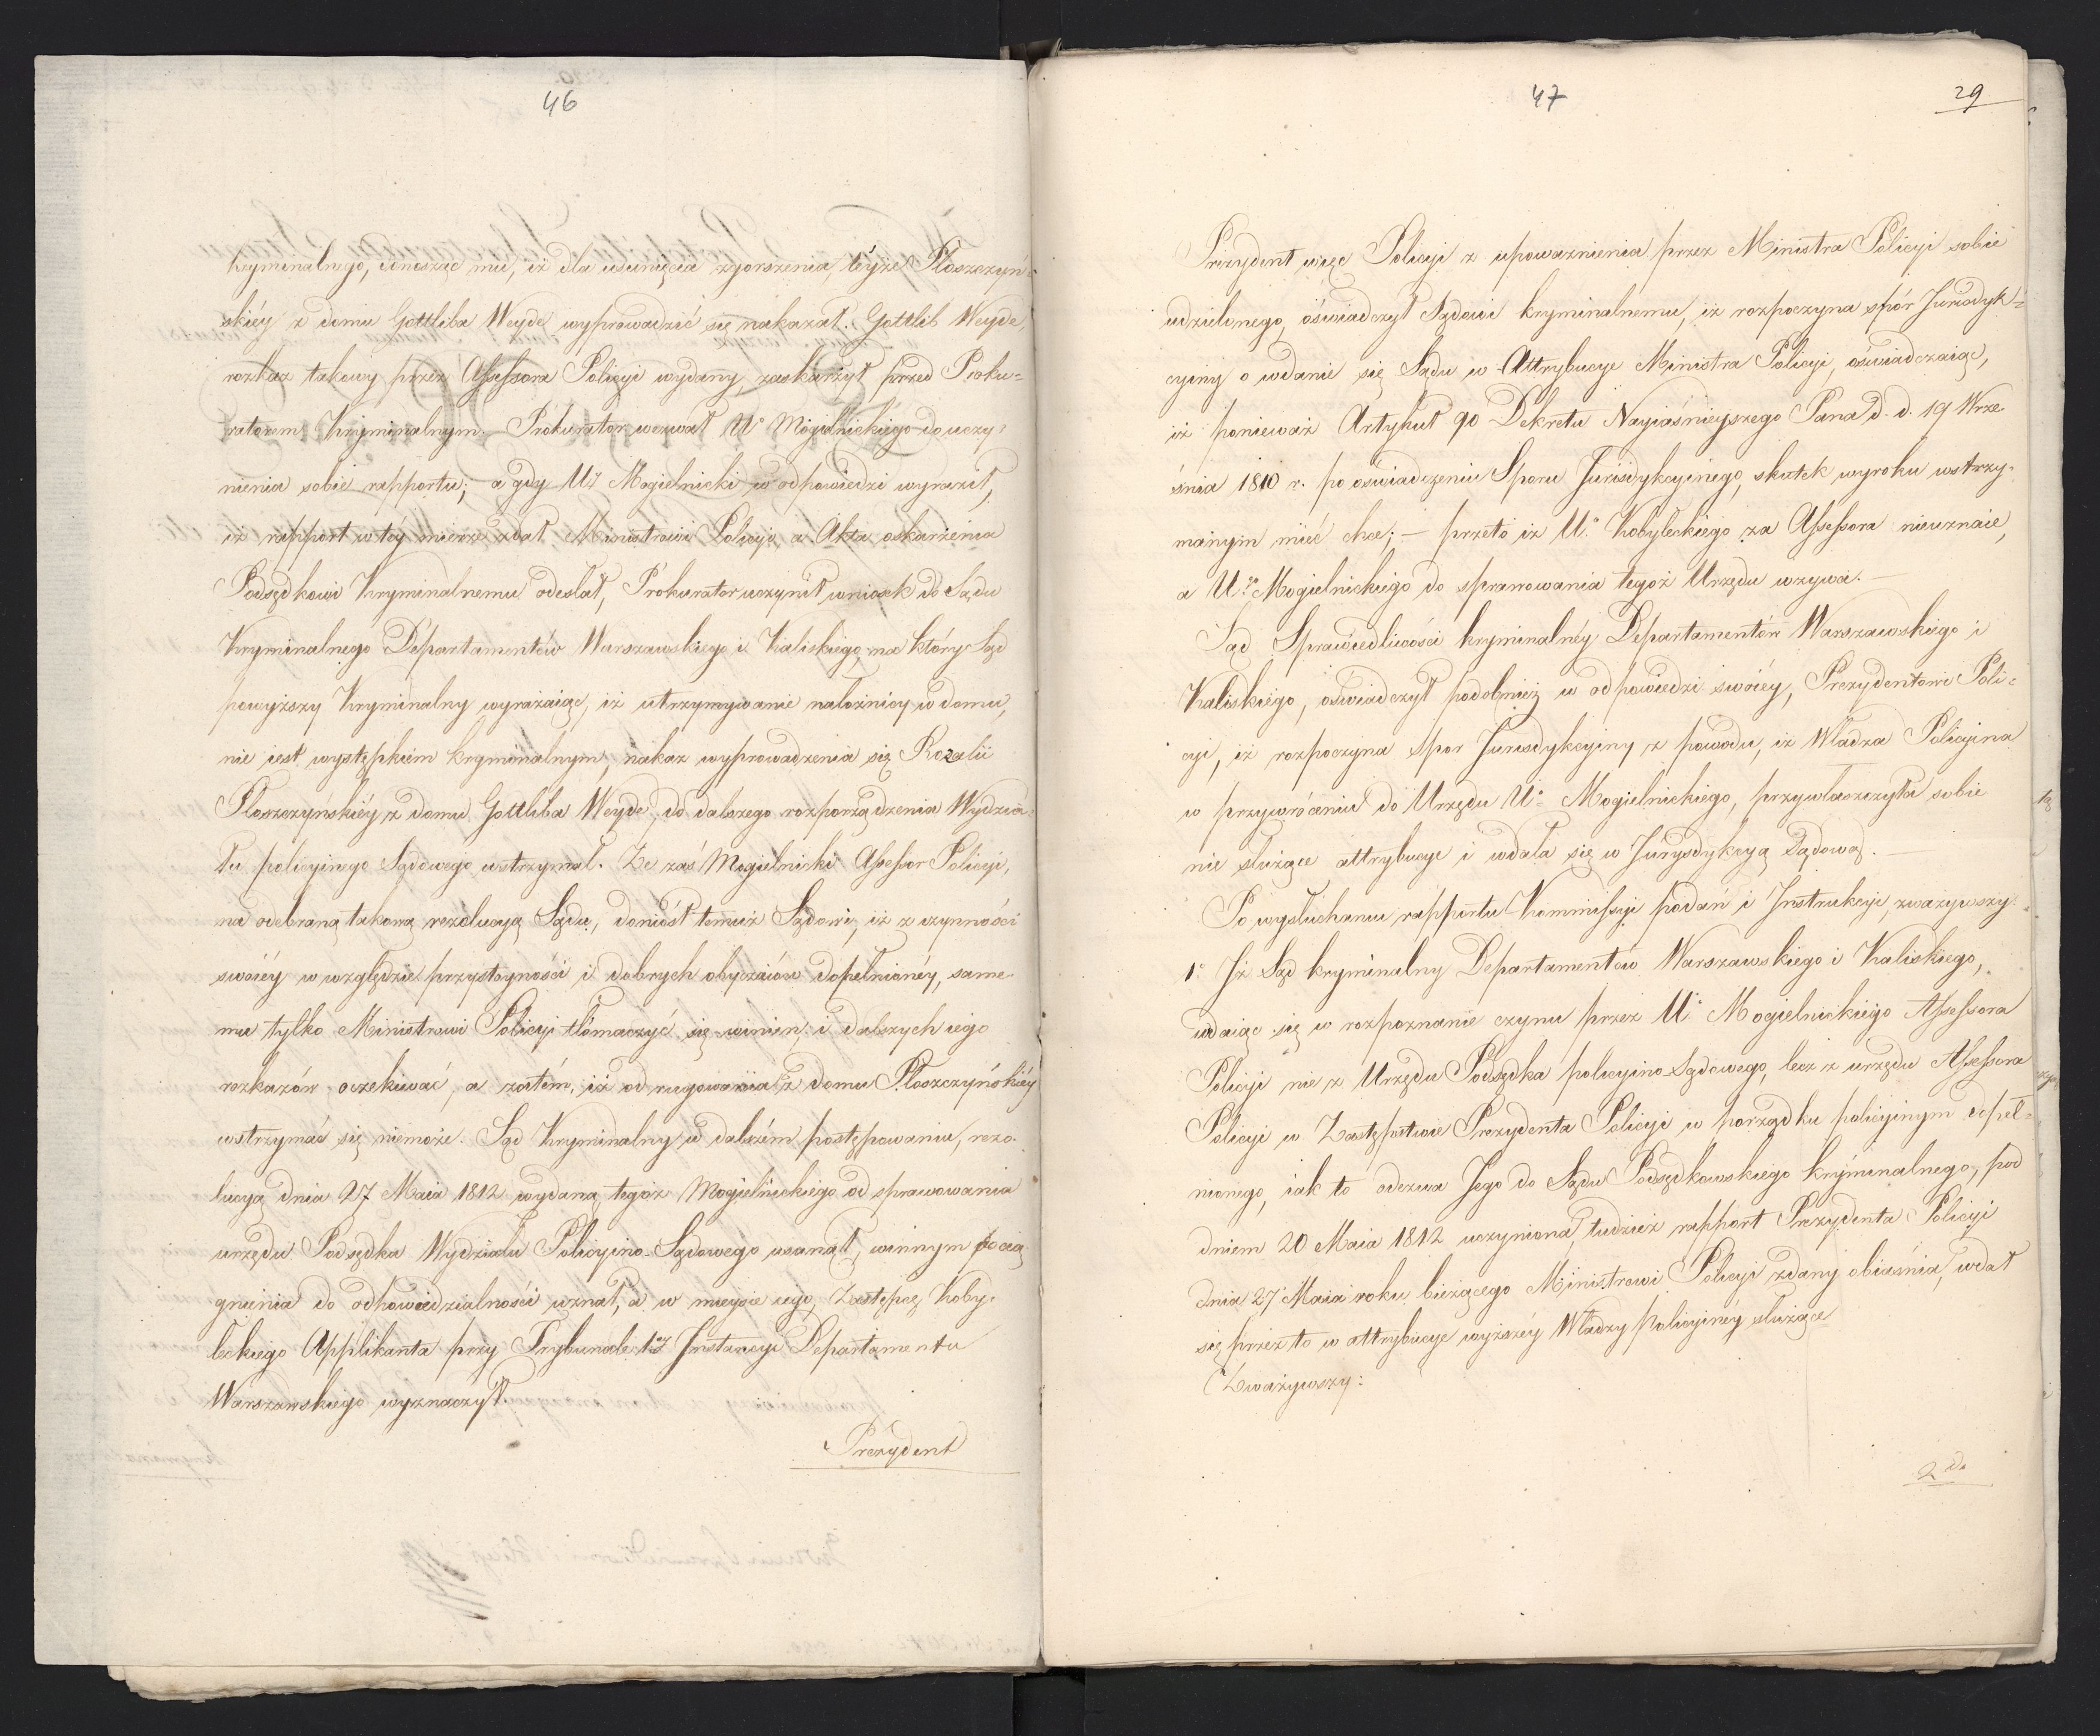 46
kryminalnego, donosząc mu, iż dla usunięcia zgorszenia, téyże Płoszczyń=
skiéy z domu Gottliba Weyde wyprowadzić się nakazał. Gottlib Weyde,
rozkaz takowy przez Assessora Policyi wydany, zaskarżył przed Proku=
ratorem Kryminalnym. Prokurator wezwał Uo Mogielnickiégo do uczy=
nienia sobie rapportu; a gdy Ur Mogielnicki w odpowiedzi wyraził,
iż rapport w téy mierze zdał Ministrowi Policyi a Akta oskarżenia
Podsędkowi Kryminalnemu odesłał, Prokurator uczynił wniosek do Sądu
Kryminalnego Départamentów Warszawskiego i Kaliskiego, na który Sąd
powyższy Kryminalny wyrażaiąc, iż utrzymywanie nałożnicy w domu,
nie iest występkiem kryminalnym, nakaz wyprowadzenia się Rozalii
Płoszczyńskiéy z domu Gottliba Weyde, do dalszego rozporządzenia Wydzia=
łu policyinego Sądowego wstrzymał. Że zaś Mogielnicki Assessor Policyi,
na odebraną takową rezolucyą Sądu, doniósł temuż Sądowi, iż z czynności
swoiéy w względzie przystoyności i dobrych obyczaiów dopełnionéy, same
mu tylko Ministrowi Policyi tłómaczyć się winien, i dalszych iego
rozkazów oczekiwać, a zatém, iż od rugowania z domu Płoszczyńskiéy
wstrzymać się niemoże. Sąd Kryminalny w dalszém postępowaniu, rezo=
lucyą dnia 27 Maia 1812 wydaną tegoż Mogielnickiego od sprawowania
urzędu Podsędka Wydziału Policyino-Sądowego usunął, winnym pocią
gnienia do odpowiedzialności uznał, a w mieysce iego, Zastępcę Koby=
leckiego Applikanta przy Trybunale 1éy Instancyi Departamentu
Warszawskiego wyznaczył.
Prezydent
47
29
Prezydent więc Policyi z upoważnienia przez Ministra Policyi sobie
udzielonego, oświadczył Sądowi kryminalnemu, iż rozpoczyna spór Jurisdyk=
cyiny o wdanie się Sądu w Attrybucye Ministra Policyi, oświadczaiąc,
iż ponieważ Artykuł 90 Dekretu Nayiaśnieyszego Pana d. d. 19 Wrze
śnia 1810 r. po oświadczeniu Sporu Jurisdykcyinego, skutek wyroku wstrzy=
manym mieć chce; – przeto iż Uo Kobyleckiego za Assessora nieuznaie,
a Ugo Mogielnickiego do sprawowania tegoż Urzędu wzywa. —
Sąd Sprawiedliwości kryminalnéy Departamentów Warszawskiego i
Kaliskiego, oświadczył podobnież w odpowiedzi swoiéy, Prezydentowi Poli=
cyi, iż rozpoczyna spor Jurisdykcyiny z powodu, iż Władza Policyina
w przywróceniu do Urzędu Uo Mogielnickiego, przywłaszczyła sobie
nie służące attrybucye i wdała się w Jurysdykcyą Sądową. —
Po wysłuchaniu rapportu Kommissyi podań i Instrukcyi, zważywszy
1o Iż Sąd kryminalny Departamentów Warszawskiego i Kaliskiego,
wdaiąc się w rozpoznanie czynu przez Uo Mogielnickiego Assessora
Policyi nie z Urzędu Podsędka policyino-Sądowego, lecz z urzędu Assessora
Policyi w Zastępstwie Prezydenta Policyi w porządku policyinym dopeł=
nionego, iak to odezwa Jego do Sądu Podsędkowskiego kryminalnego, pod
dniem 20 Maia 1812 uczyniona, tudzież rapport Prezydenta Policyi
dnia 27 Maia roku bieżącego Ministrowi Policyi zdany obiaśnia, wdał
się przez to w attrybucye wyższéy Władzy Policyinéy służące
Zważywszy:
2do